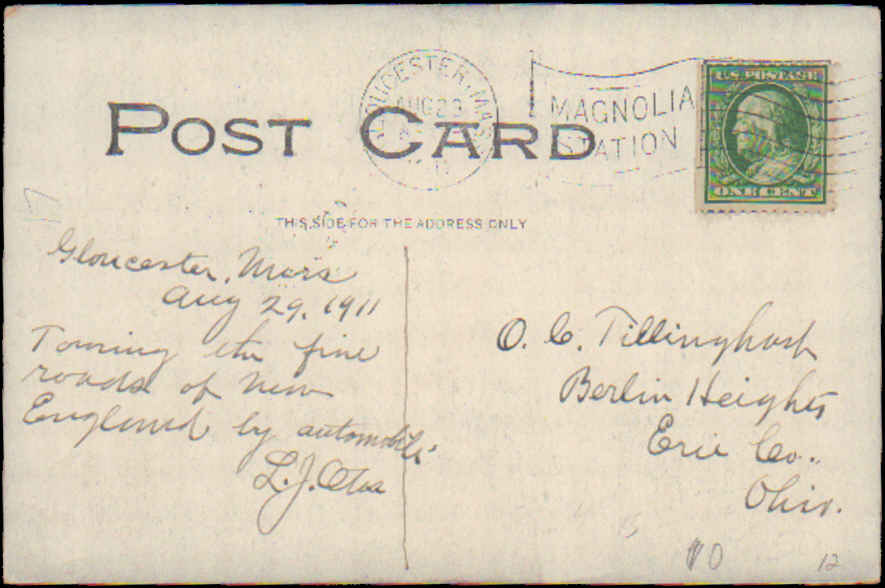 GLOUCESTER, MASS.
AUG 29
MAGNOLIA
STATION
U.S. POSTAGE
ONE CENT
POST CARD
THIS SIDE FOR THE ADDRESS ONLY
Gloucester, Mass
Aug 29, 1911
Touring the fine
roads of New
England by automobile
L. J. Otis
O. C. Tillinghast
Berlin Heights
Erie Co.
Ohio.
12